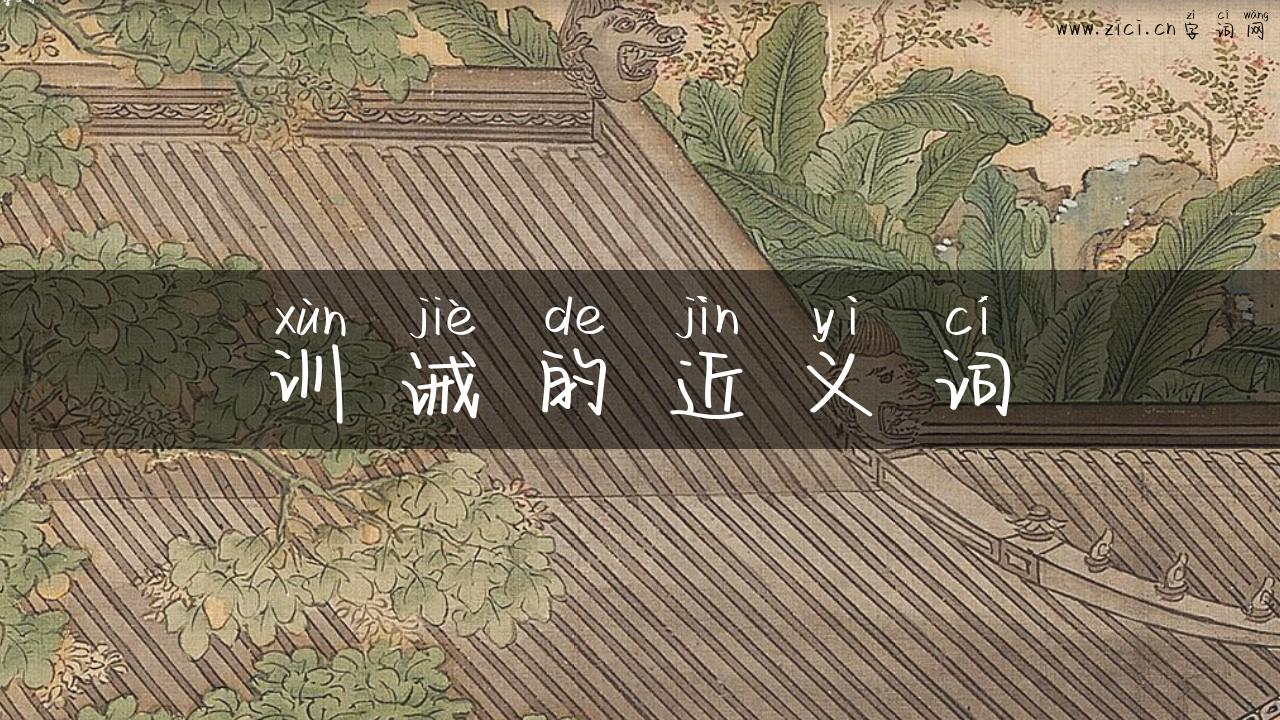 zì cí wǎng
www.zici.cn 字词网
xùn jiè de jìn yì cí
训诫的近义词